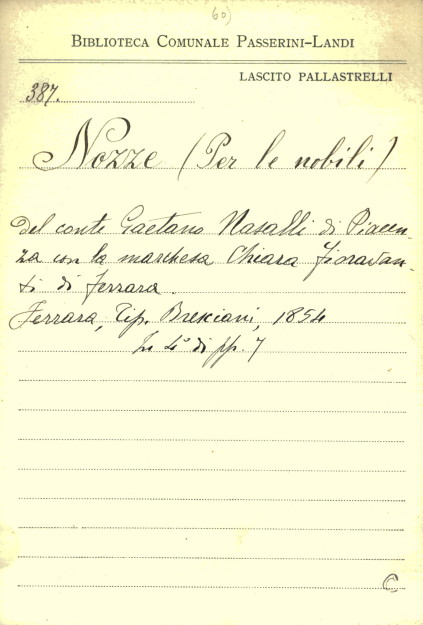 60)
BIBLIOTECA COMUNALE PASSERINI-LANDI
LASCITO PALLASTRELLI
387.
Nozze (Per le nobili)
del conte Gaetano Nasalli di Piacen-
za con la marchesa Chiara Fioravan-
ti di Ferrara.
Ferrara, Tip. Bresciani, 1854
In 4° di pp. 7
C